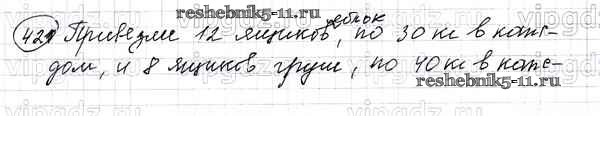 reshebnik5-11.ru
яблок
421 Привезли 12 ящиков, по 30 кг в каж-
дом, и 8 ящиков груш, по 40 кг в каж-
reshebnik5-11.ru